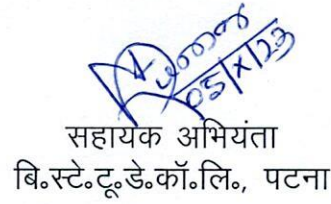 05/X/23
सहायक अभियंता
बि॰स्टे॰टू॰डे॰कॉ॰लि॰, पटना